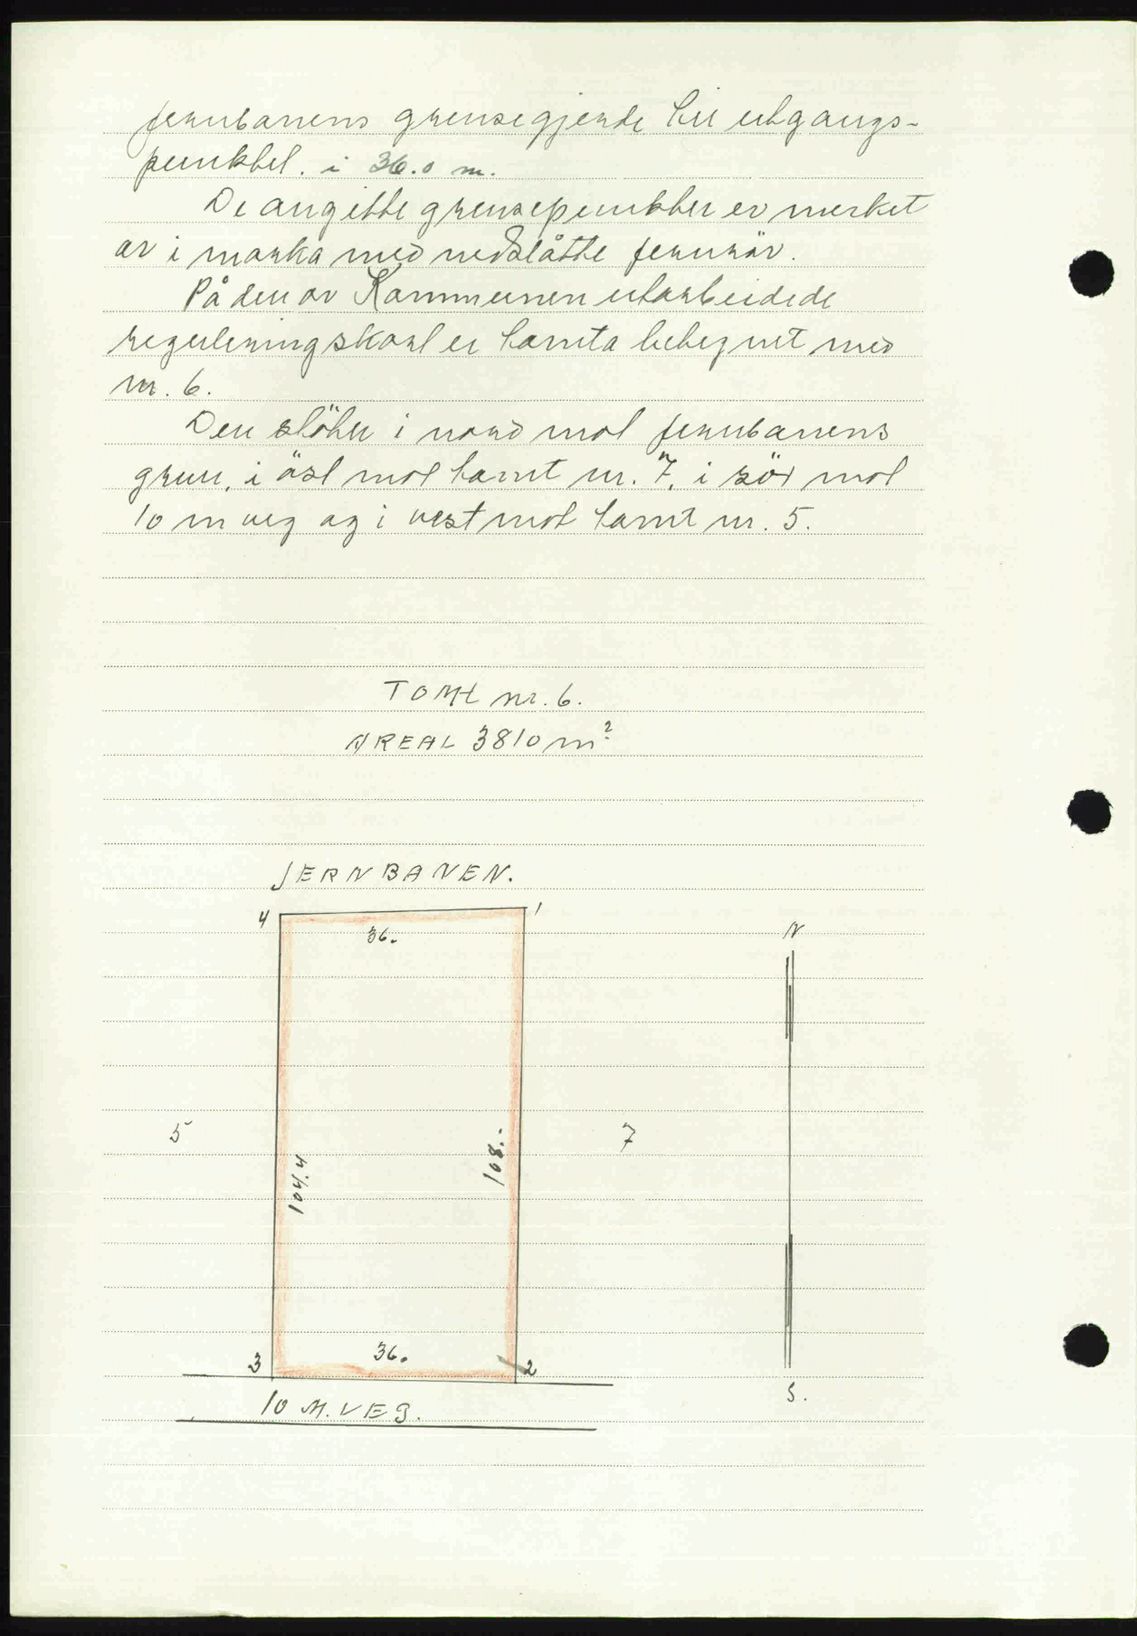 jernbanens grensegjerde til utgangs-
punktet. i 36.0 m.
De angitte grensepunkter er merket
av i marka med nedslåtte jernrör.
På den av Kommunen utarbeidede
reguleringskart er tomta betegnet med
nr. 6.
Den stöter i nord mot jernbanens
gren. i öst mot tomt nr. 7. i sör mot
10 m veg og i vest mot tomt nr. 5.
TOMT nr. 6.
AREAL 3810 m²
JERNBANEN.
4 1
36.
N
5 104.4 108.- 7
36.
3 2
S.
10 M. VEG.